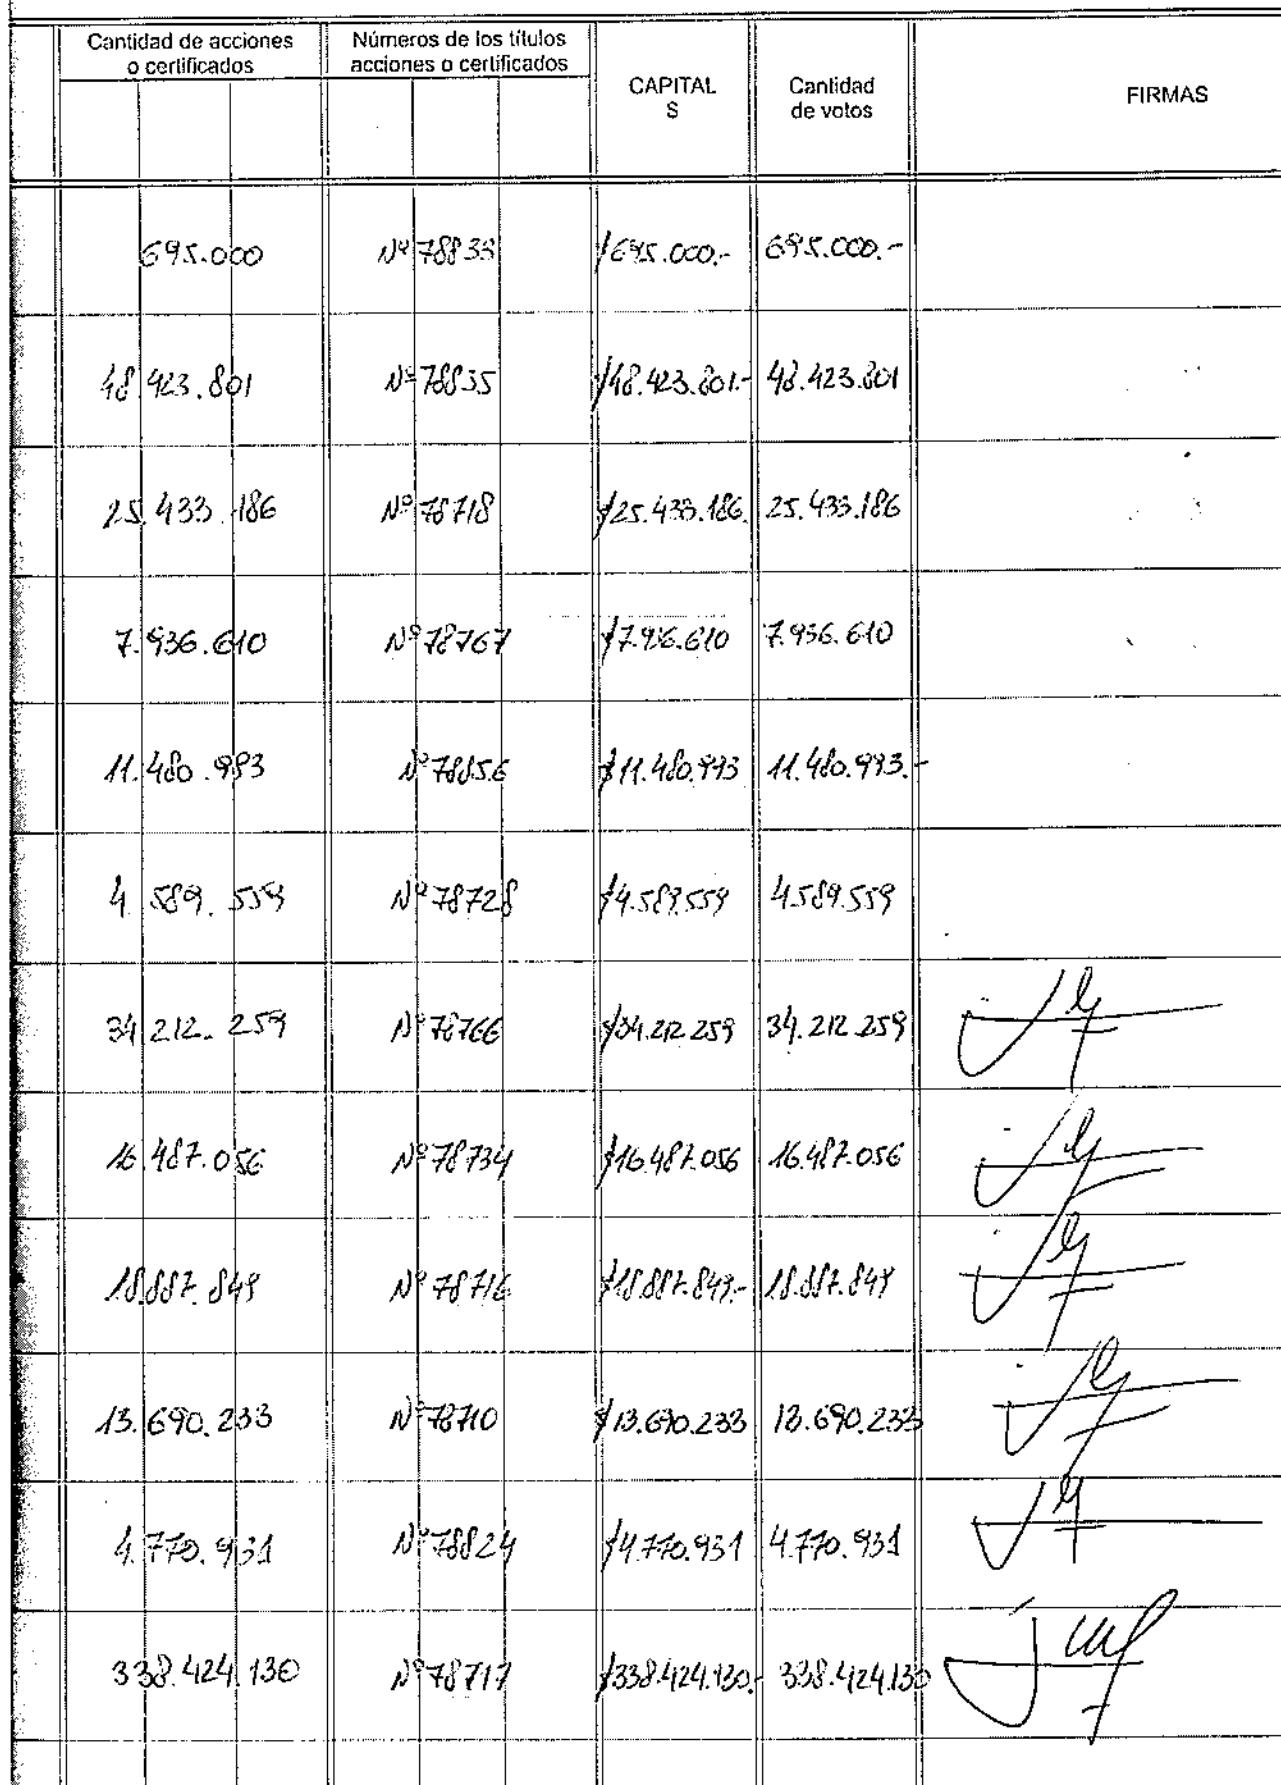 Cantidad de acciones o certificados | Números de los títulos acciones o certificados | CAPITAL $ | Cantidad de votos | FIRMAS
695.000 Nº 78833 $695.000.- 695.000.-
48.423.801 Nº 78835 $48.423.801.- 48.423.801
25.433.186 Nº 78718 $25.433.186. 25.433.186
7.936.610 Nº 78767 $7.936.610 7.936.610
11.480.993 Nº 78856 $11.480.993 11.480.993.-
4.589.559 Nº 78728 $4.589.559 4.589.559
34.212.259 Nº 78766 $34.212.259 34.212.259
16.487.056 Nº 78734 $16.487.056 16.487.056
18.887.849 Nº 78716 $18.887.849.- 18.887.849
13.690.233 Nº 78710 $13.690.233 13.690.233
4.770.931 Nº 78824 $4.770.931 4.770.931
338.424.130 Nº 78717 $338.424.130.- 338.424.130